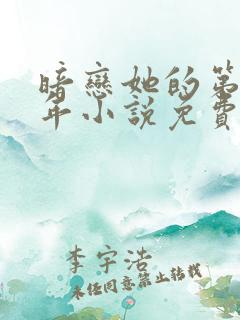 暗戀她的第
年小說免費
李宇浩
未经同意禁止转载